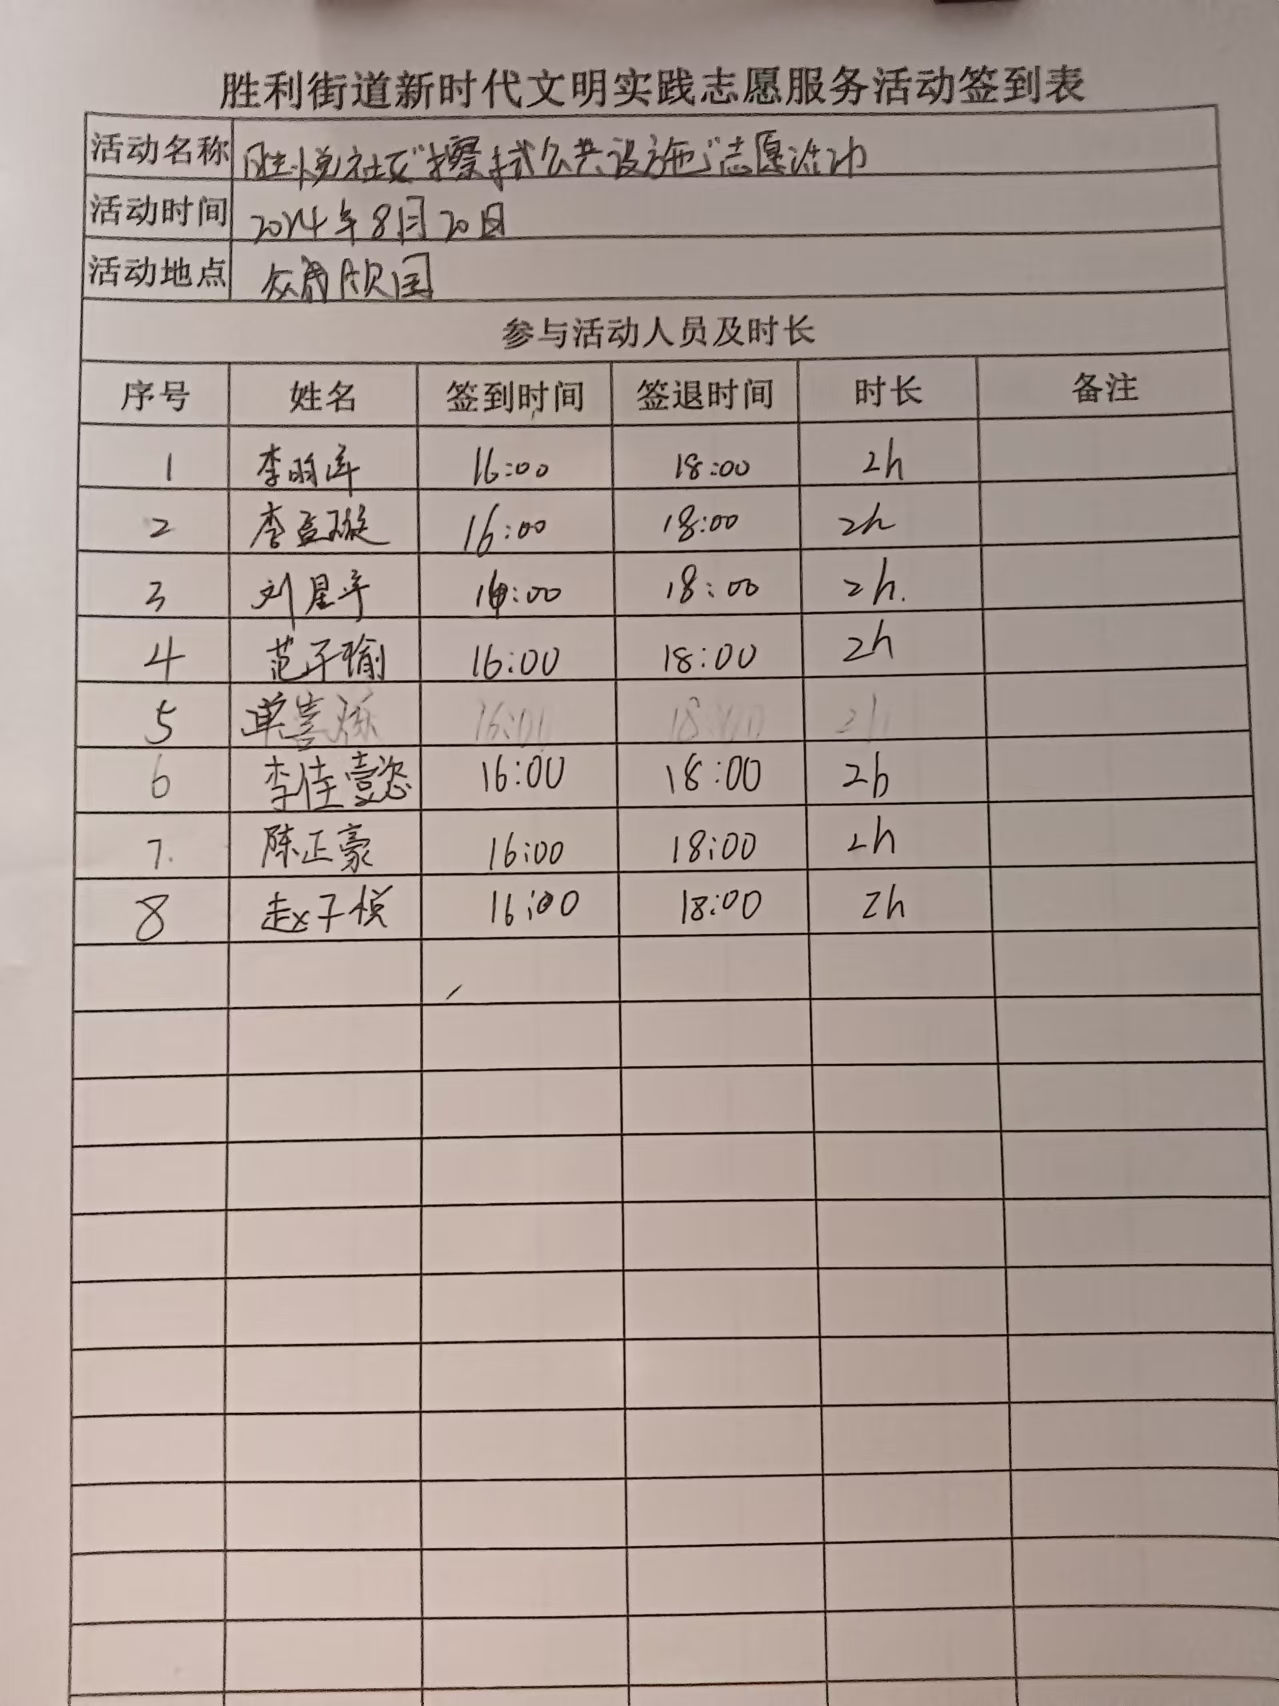 胜利街道新时代文明实践志愿服务活动签到表
活动名称 胜悦社区“擦拭公共设施”志愿活动
活动时间 2024年8月20日
活动地点 欣园
参与活动人员及时长
序号 姓名 签到时间 签退时间 时长 备注
1 李 16:00 18:00 2h
2 李孟璇 16:00 18:00 2h
3 刘星宇 16:00 18:00 2h.
4 范子瑜 16:00 18:00 2h
5 单喜 16:00 18:00 2h
6 李佳壹恣 16:00 18:00 2h
7. 陈正豪 16:00 18:00 2h
8 赵子悦 16:00 18:00 2h